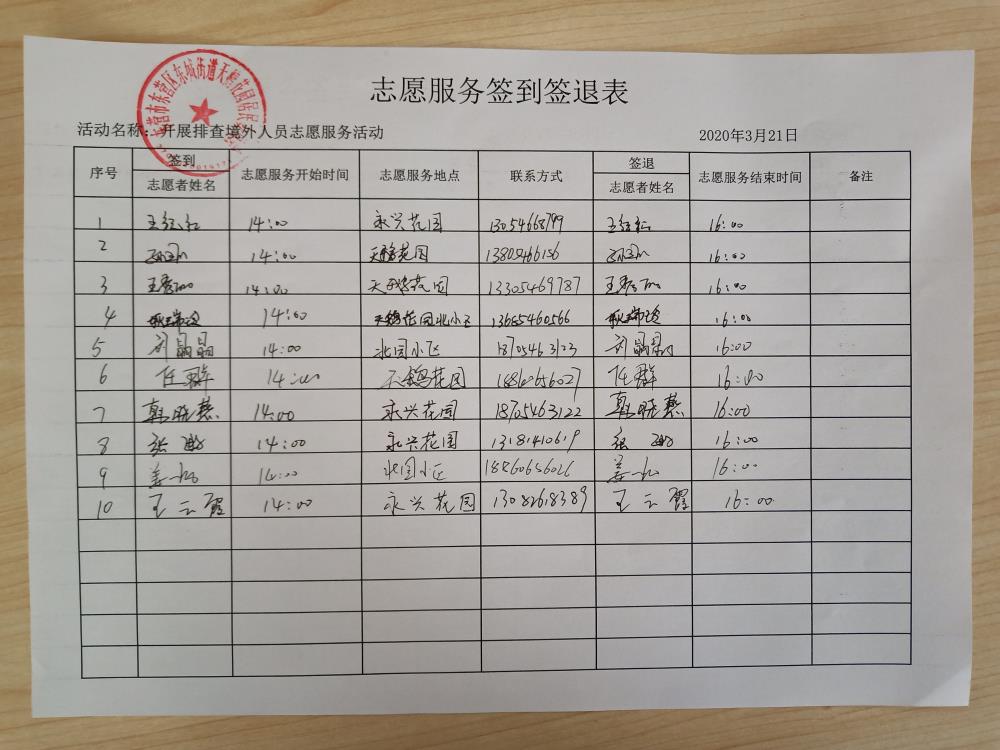 志愿服务签到签退表
活动名称：开展排查境外人员志愿服务活动 2020年3月21日
序号 签到 志愿者姓名 志愿服务开始时间 志愿服务地点 联系方式 签退 志愿者姓名 志愿服务结束时间 备注
1 14:00 永兴花园 13054668799 16:00
2 14:00 天鹅花园 16:00
3 14:00 天鹅花园 13305469787 16:00
4 14:00 天鹅花园北小区 13685460566 16:00
5 刘晶晶 14:00 北园小区 18705463123 刘晶晶 16:00
6 任群 14:00 天鹅花园 任群 16:00
7 韩晓燕 14:00 永兴花园 18705463122 韩晓燕 16:00
8 张敏 14:00 永兴花园 13181410619 张敏 16:00
9 14:00 北园小区 18560656026 16:00
10 王云霞 14:00 永兴花园 13082618389 王云霞 16:00